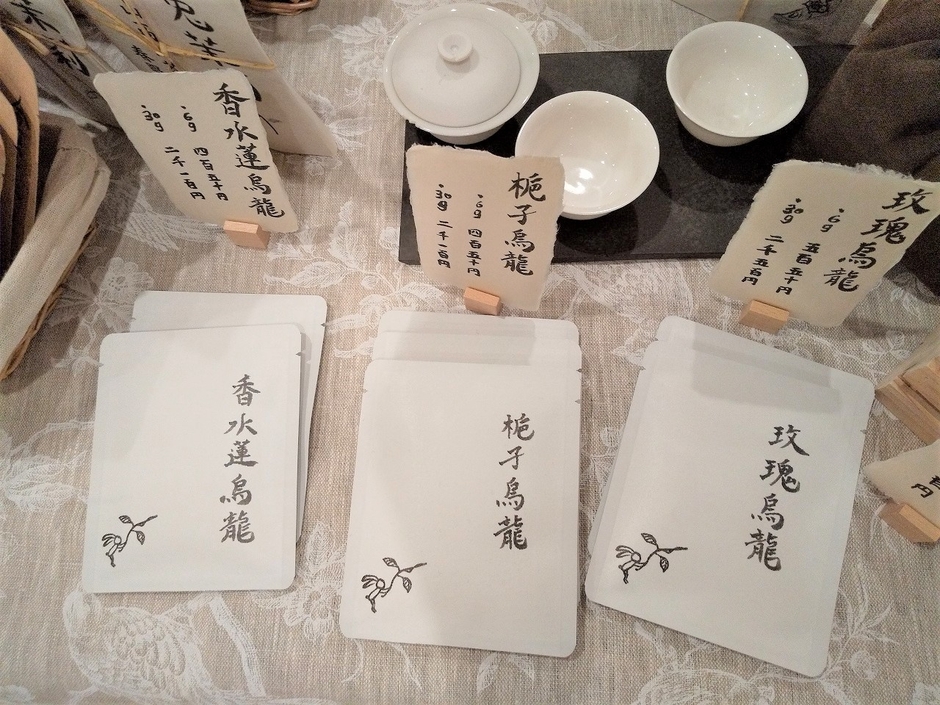 香水蓮烏龍
・6g 四百五十円
・30g 二千一百円
梔子烏龍
・6g 四百五十円
・30g 二千一百円
玫瑰烏龍
・6g 五百五十円
・30g 二千五百円
香水蓮烏龍
梔子烏龍
玫瑰烏龍